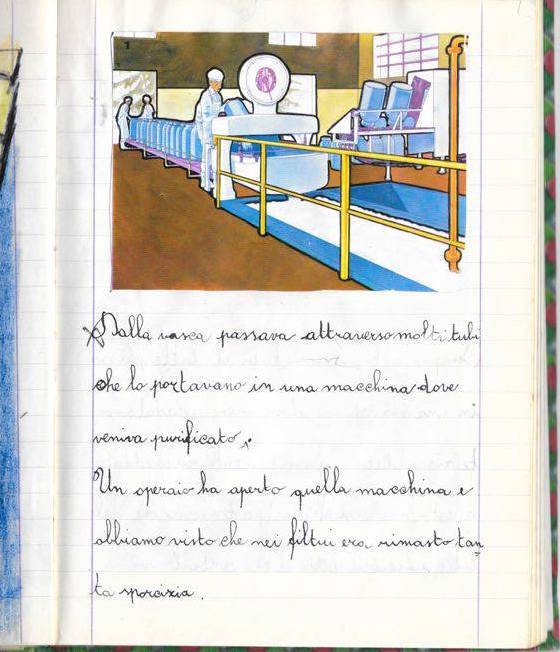 1
Dalla vasca passava attraverso molti tubi
che lo portavano in una macchina dove
veniva purificato.
Un operaio ha aperto quella macchina e
abbiamo visto che nei filtri era rimasto tan
ta sporcizia.